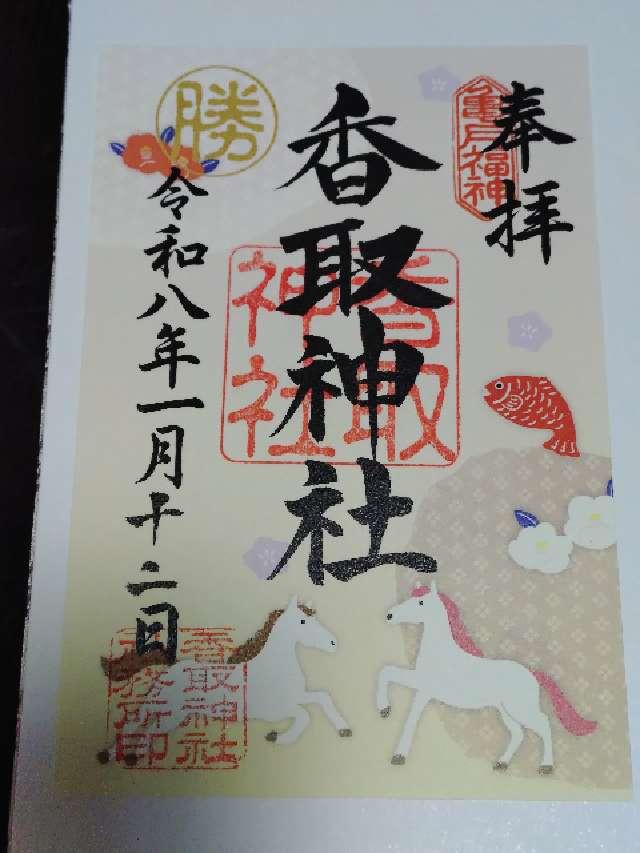 奉拝
亀戸福神
香取神社
香取神社
勝
令和八年一月十二日
香取神社
社務所印